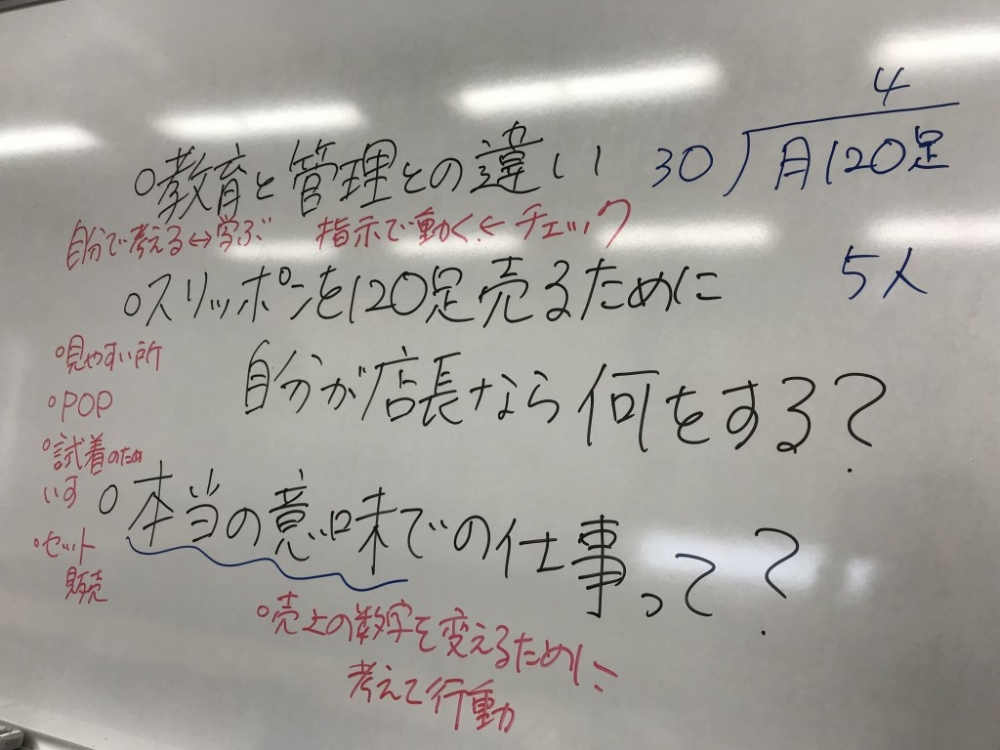 ○教育と管理との違い
自分で考える↔学ぶ 指示で動く←チェック
○スリッポンを120足売るために
自分が店長なら何をする?
○本当の意味での仕事って?
○売上の数字を変えるために
考えて行動
○見やすい所
○POP
○試着のため
いす
○セット
販売
4
30)月120足
5人